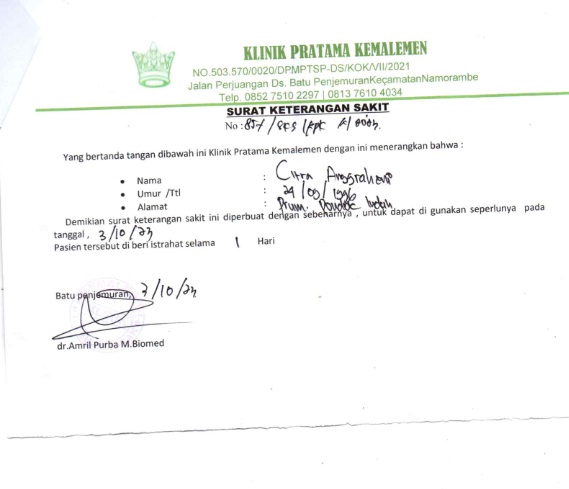 KLINIK PRATAMA KEMALEMEN
NO.503.570/0020/DPMPTSP-DS/KOK/VII/2021
Jalan Perjuangan Ds. Batu PenjemuranKeçamatanNamorambe
Telp. 0852 7510 2297 | 0813 7610 4034
SURAT KETERANGAN SAKIT
No :
Yang bertanda tangan dibawah ini Klinik Pratama Kemalemen dengan ini menerangkan bahwa :
• Nama : Citra
• Umur /Ttl : 24/09/1996
• Alamat : Prum. Pondok Indah
Demikian surat keterangan sakit ini diperbuat dengan sebenarnya , untuk dapat di gunakan seperlunya pada
tanggal , 3/10/23
Pasien tersebut di beri istrahat selama 1 Hari
Batu penjemuran, 3/10/23
dr.Amril Purba M.Biomed